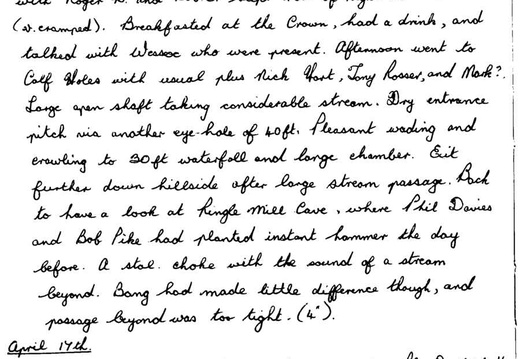 with Roger
(v. cramped). Breakfasted at the Crown, had a drink, and
talked with Wessoc who were present. Afternoon went to
Calf Holes with usual plus Nick Hart, Tony Rosser, and Mark?.
Large open shaft taking considerable stream. Dry entrance
pitch via another eye-hole of 40ft. Pleasant wading and
crawling to 30ft waterfall and large chamber. Exit
further down hillside after large stream passage. Back
to have a look at Ringle Mill Cave, where Phil Davies
and Bob Pike had planted instant hammer the day
before. A stal. choke with the sound of a stream
beyond. Bang had made little difference though, and
passage beyond was too tight. (4").
April 17th.